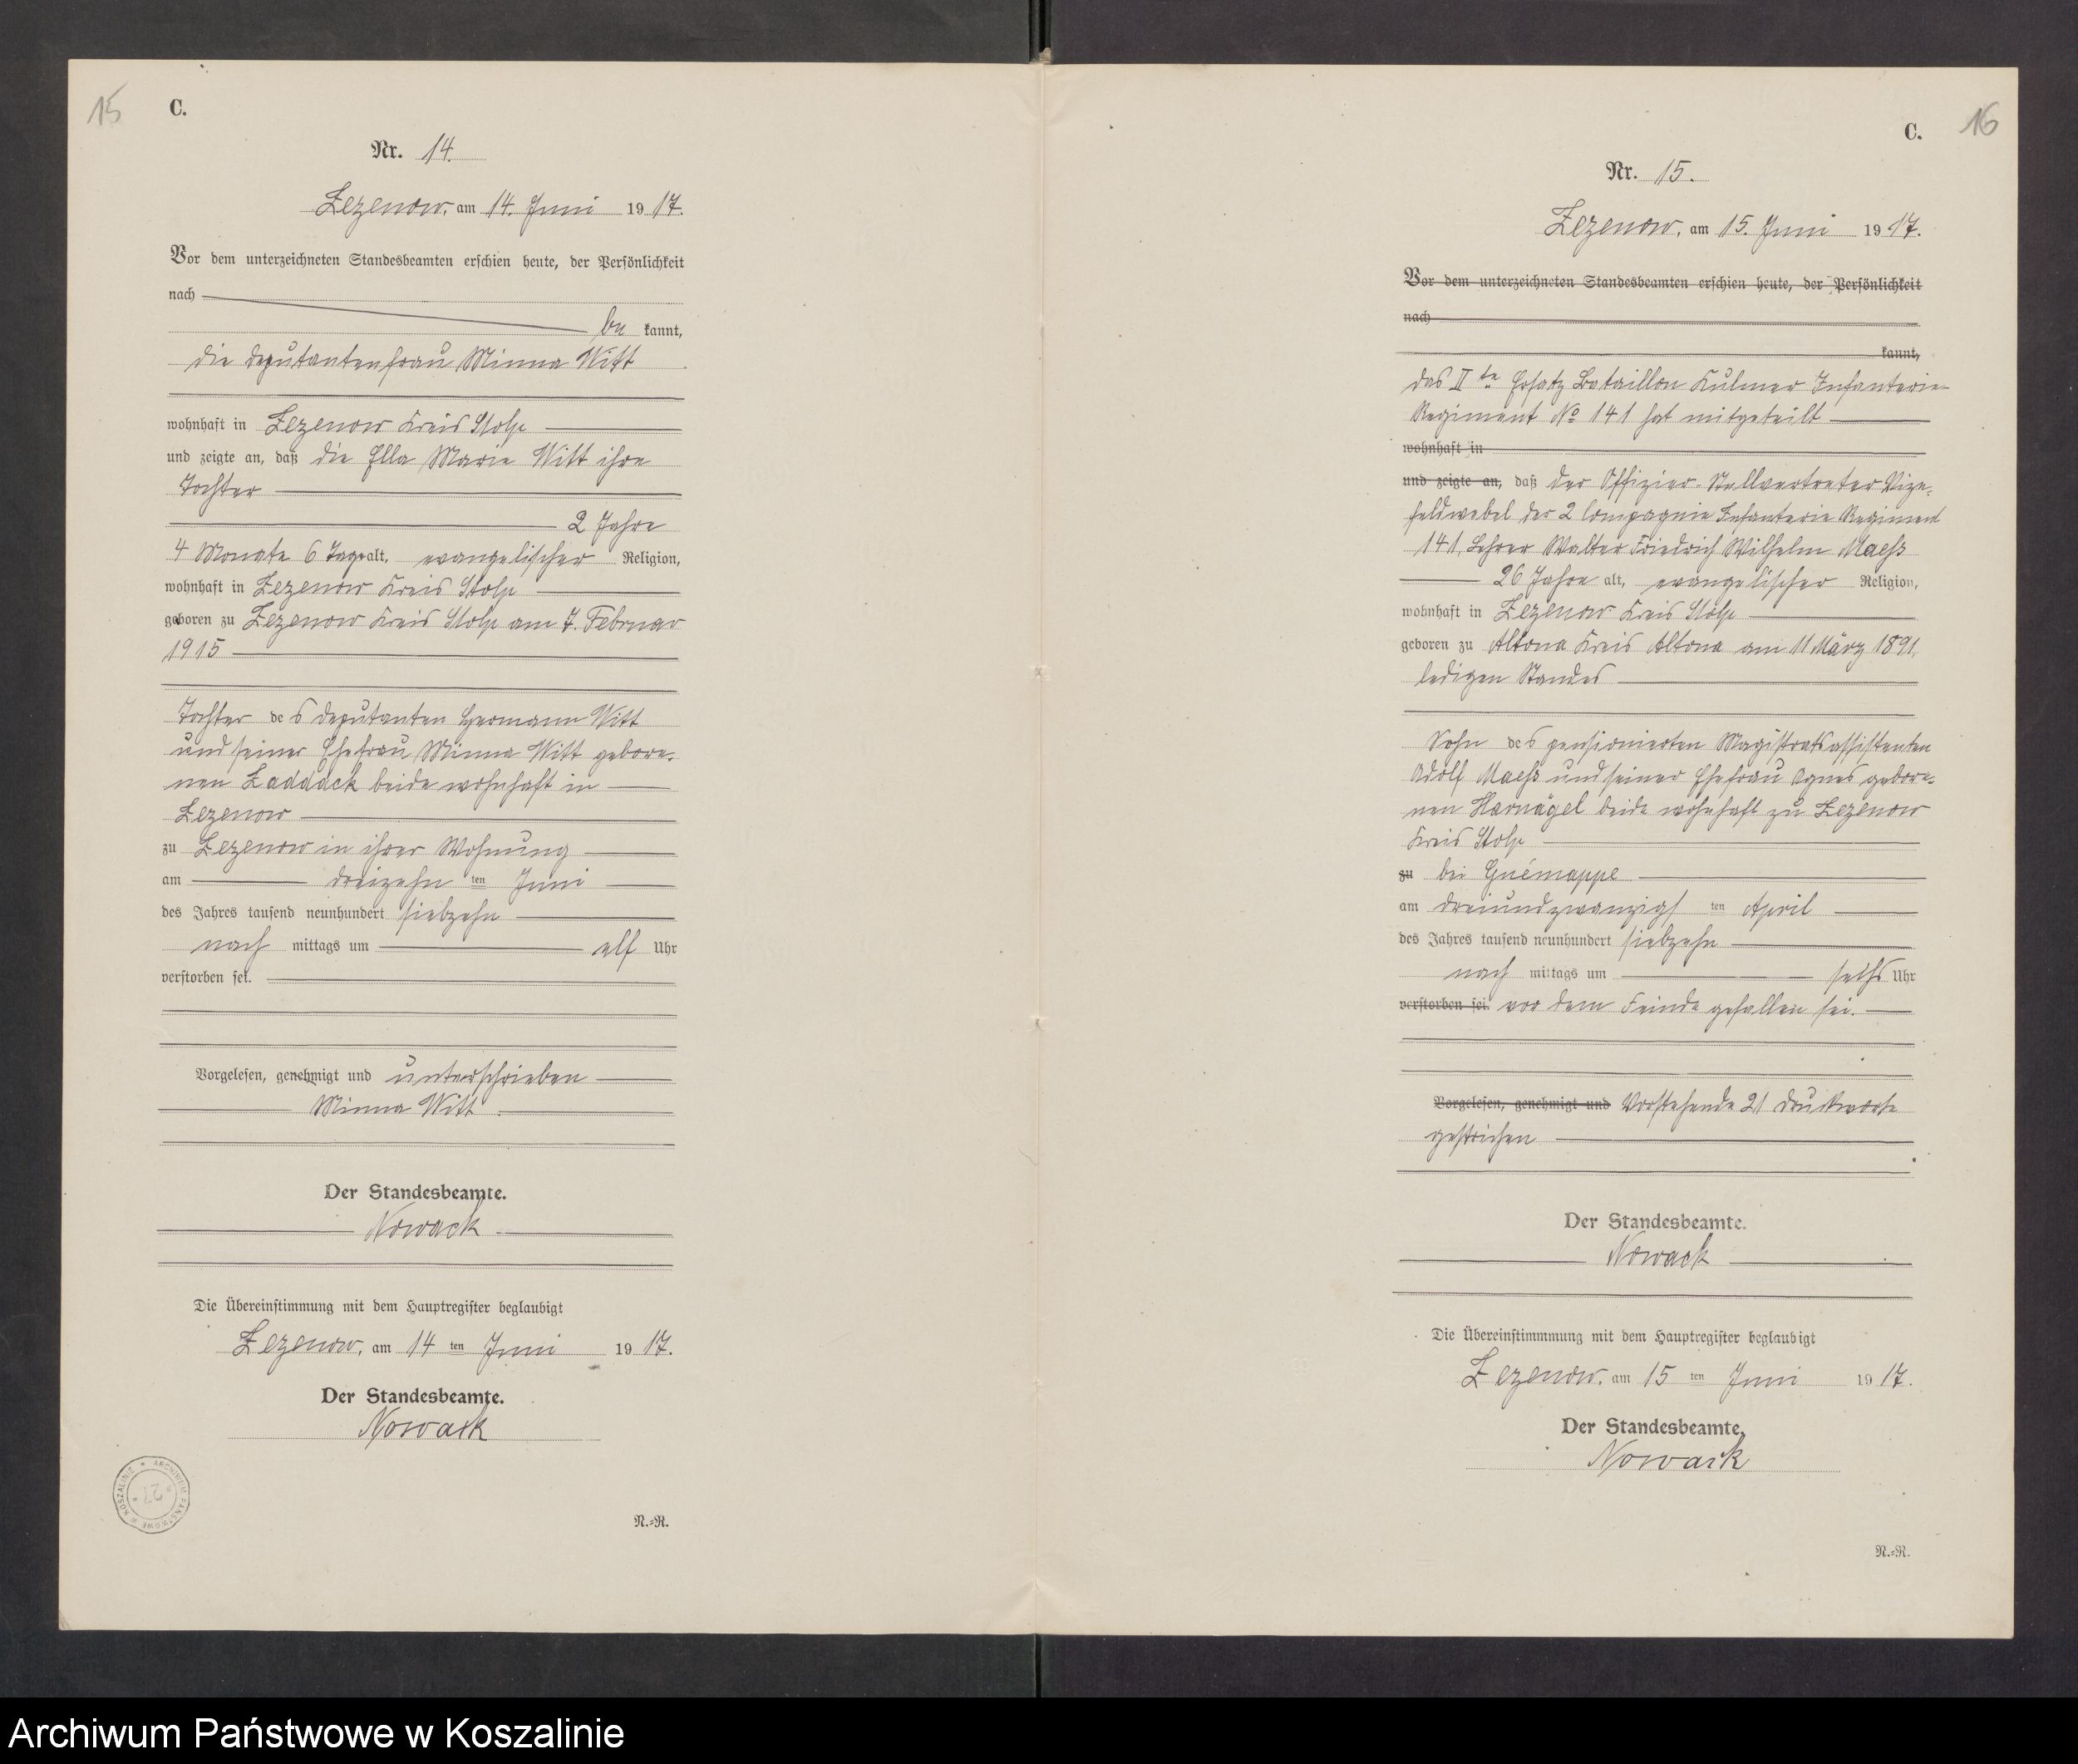 15
C.
Nr. 14.
Zezenow, am 14. Juni 1917.
Vor dem unterzeichneten Standesbeamten erschien heute, der Persönlichkeit
nach
be kannt,
die Deputantenfrau Minna Witt
wohnhaft in Zezenow Kreis Stolp
und zeigte an, daß die Ella Marie Witt ihre
Tochter
2 Jahre
4 Monate 6 Tage alt, evangelischer Religion,
wohnhaft in Zezenow Kreis Stolp
geboren zu Zezenow Kreis Stolp am 7. Februar
1915
Tochter des Deputanten Hermann Witt
und seiner Ehefrau Minna Witt gebore-
nen Zaddack beide wohnhaft in
Zezenow
zu Zezenow in ihrer Wohnung
am dreizehn ten Juni
des Jahres tausend neunhundert siebzehn
nach mittags um elf Uhr
verstorben sei.
Vorgelesen, genehmigt und unterschrieben
Minna Witt
Der Standesbeamte.
Nowack
Die Übereinstimmung mit dem Hauptregister beglaubigt
Zezenow, am 14 ten Juni 1917.
Der Standesbeamte.
Nowack
ARCHIWUM PAŃSTWOWE W KOSZALINIE
27
N.-R.
16
C.
Nr. 15.
Zezenow, am 15. Juni 1917.
Vor dem unterzeichneten Standesbeamten erschien heute, der Persönlichkeit
nach
kannt,
das II te Ersatz Bataillon Kulmer Infanterie-
Regiment No 141 hat mitgeteilt
wohnhaft in
und zeigte an, daß der Offizier-Stellvertreter Vize-
feldwebel der 2 Compagnie Infanterie Regiment
141, Lehrer Walter Friedrich Wilhelm Maeß
26 Jahre alt, evangelischer Religion,
wohnhaft in Zezenow Kreis Stolp
geboren zu Altona Kreis Altona am 11 März 1891,
ledigen Standes
Sohn des pensionierten Magistratsassistenten
Adolf Maeß und seiner Ehefrau Agnes gebore-
nen Harnägel beide wohnhaft zu Zezenow
Kreis Stolp
zu bei Guémappe
am dreiundzwanzigs ten April
des Jahres tausend neunhundert siebzehn
nach mittags um sechs Uhr
verstorben sei. vor dem Feinde gefallen sei.
Vorgelesen, genehmigt und Vorstehende 21 Druckworte
gestrichen
Der Standesbeamte.
Nowack
Die Übereinstimmmung mit dem Hauptregister beglaubigt
Zezenow, am 15 ten Juni 1917.
Der Standesbeamte.
Nowack
N.-R.
Archiwum Państwowe w Koszalinie